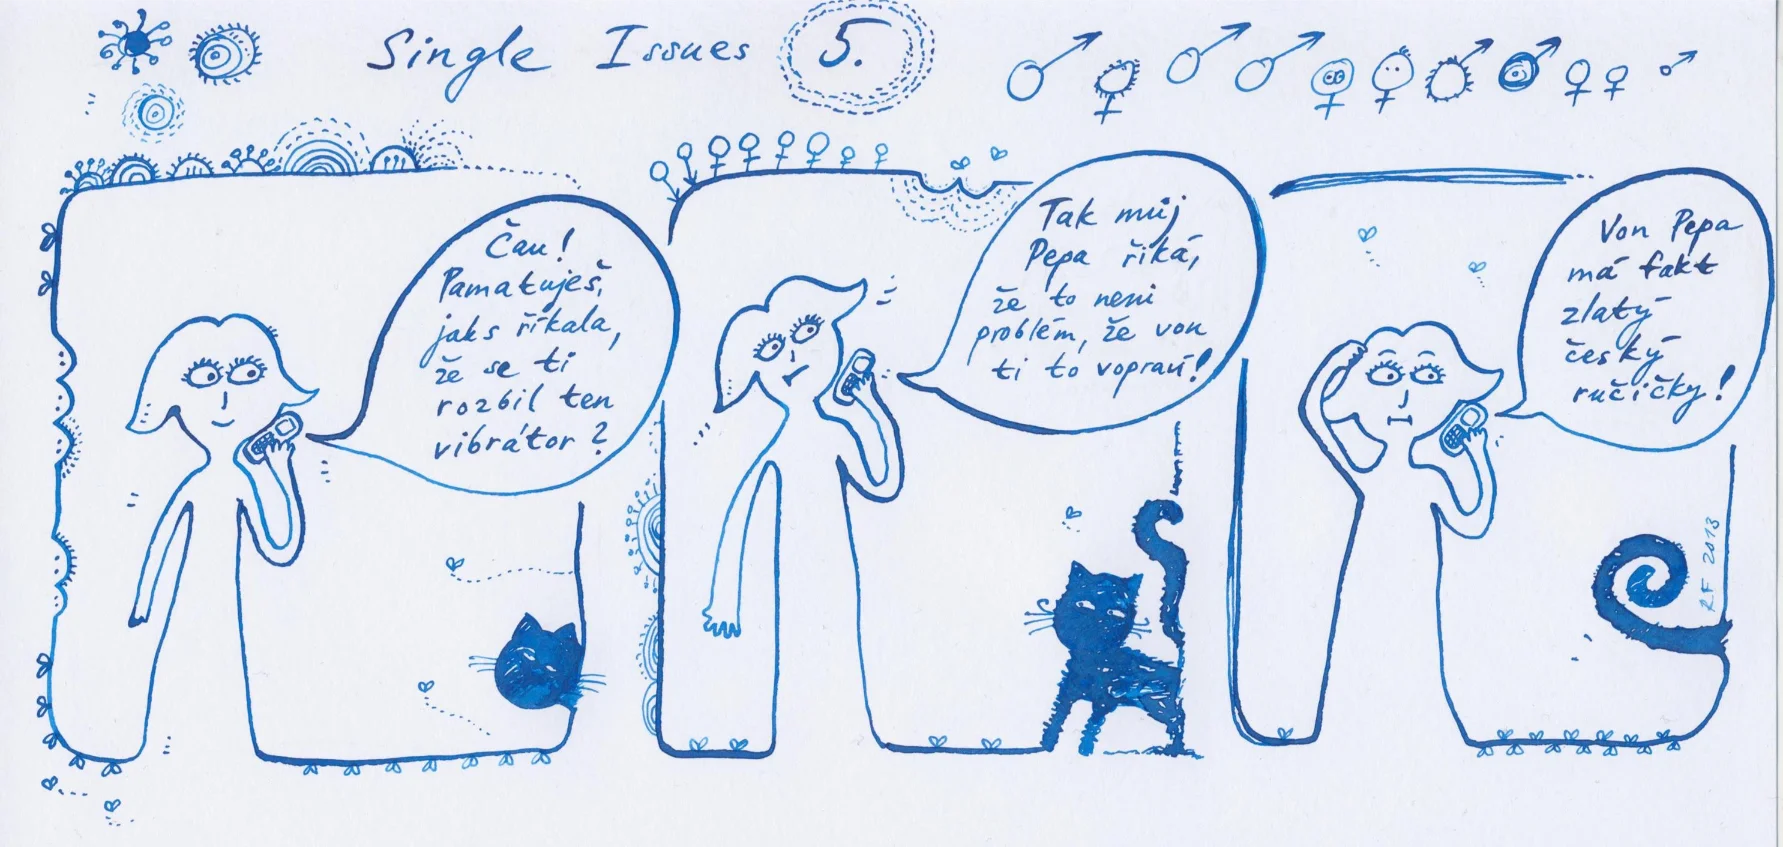 Single Issues 5.
Čau!
Pamatuješ,
jaks říkala,
že se ti
rozbil ten
vibrátor?
Tak můj
Pepa říká,
že to neni
problém, že von
ti to vopraví!
Von Pepa
má fakt
zlatý
český
ručičky!
RF 2013